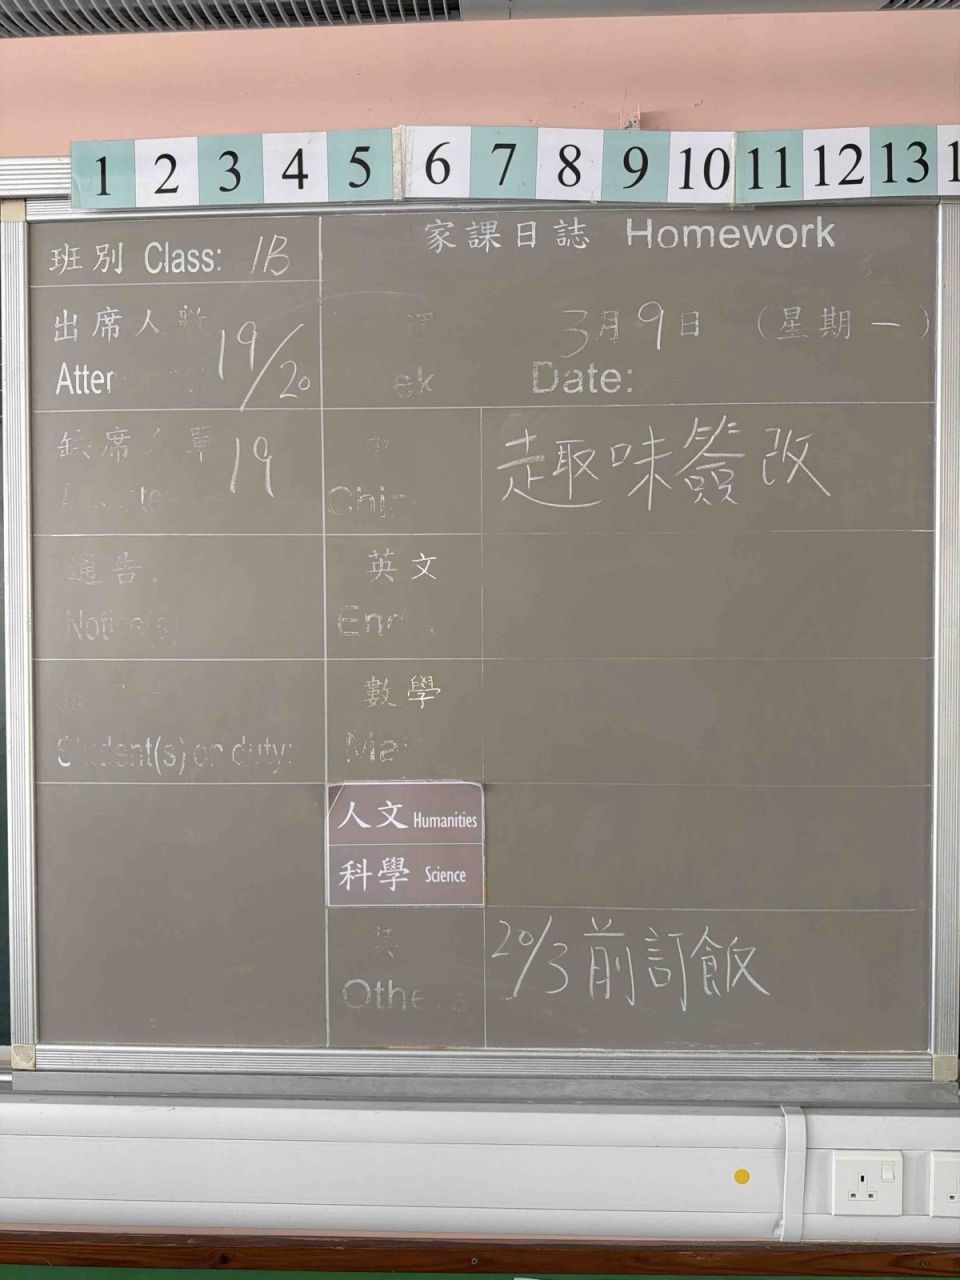 1 2 3 4 5 6 7 8 9 10 11 12 13 1
班別 Class: 1B
家課日誌 Homework
出席人數 19/20
Atten
3月9日 （星期一）
Date:
缺席名單 19
趣味簽改
通告
Notice(s)
英文
數學
Student(s) on duty:
人文 Humanities
科學 Science
Others
20/3前訂飯